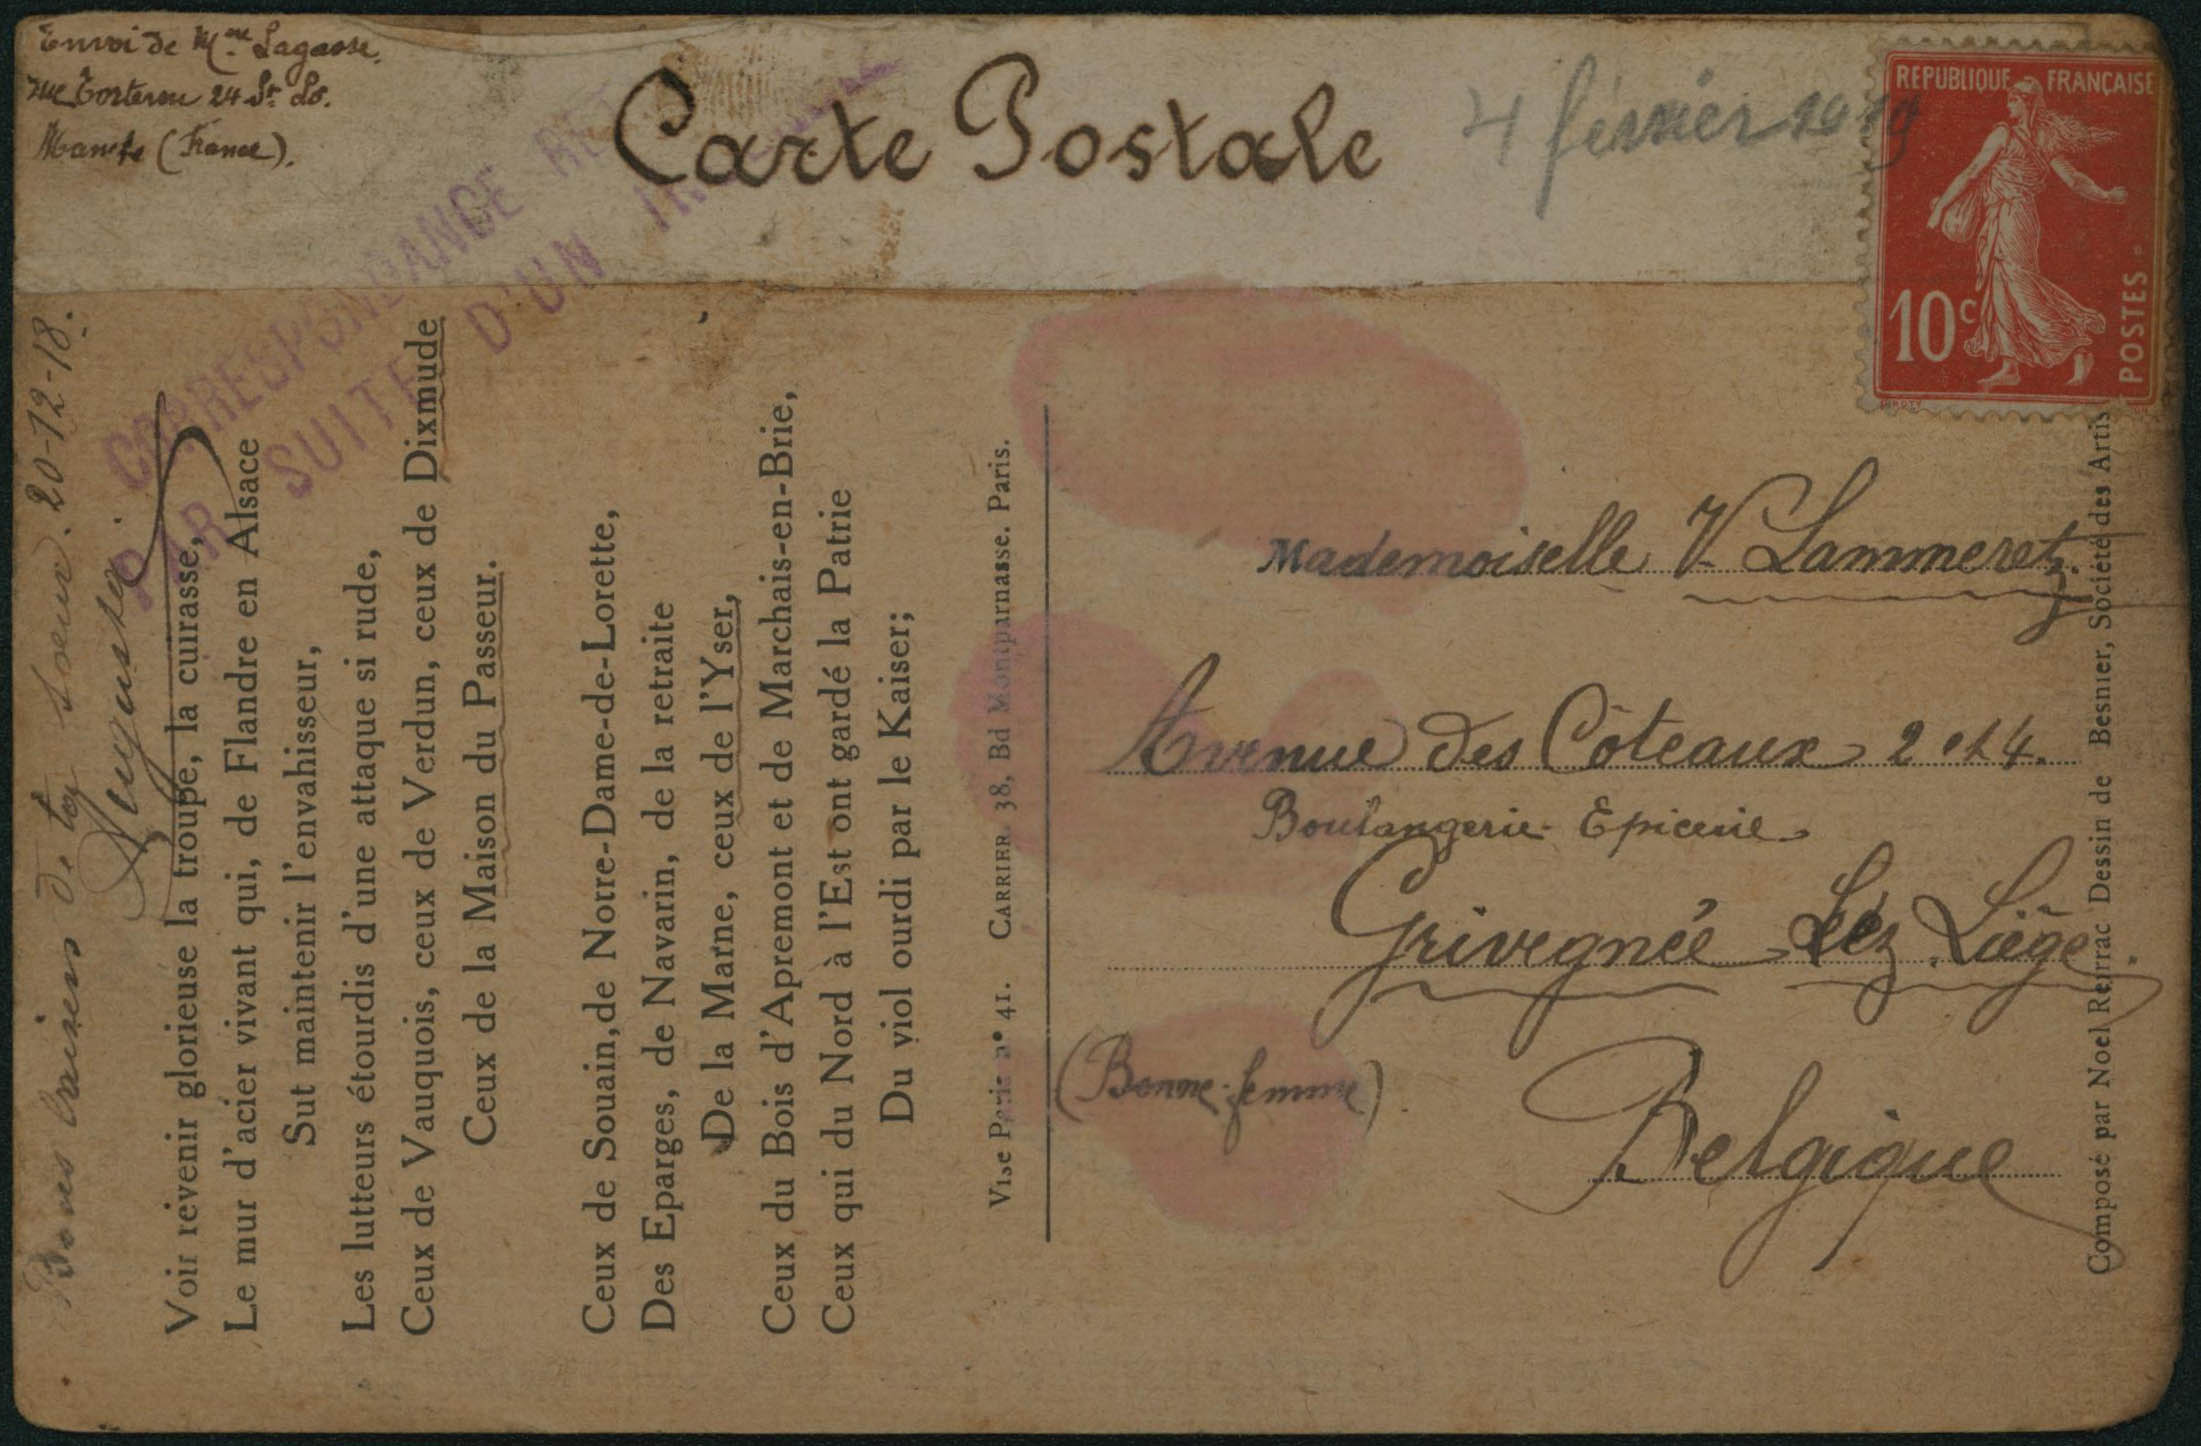 Envoi de Mme Lagasse.
rue Torteron 24 St Lo.
Manche (France).
Carte Postale
4 février 1919
REPUBLIQUE FRANÇAISE
10c
POSTES
CORRESPONDANCE RE
PAR SUITE D'UN
Bons baisers de ta soeur. 20-12-18.
Augusta
Voir revenir glorieuse la troupe, la cuirasse,
Le mur d'acier vivant qui, de Flandre en Alsace
Sut maintenir l'envahisseur,
Les lutteurs étourdis d'une attaque si rude,
Ceux de Vauquois, ceux de Verdun, ceux de Dixmude
Ceux de la Maison du Passeur.
Ceux de Souain, de Notre-Dame-de-Lorette,
Des Eparges, de Navarin, de la retraite
De la Marne, ceux de l'Yser,
Ceux du Bois d'Apremont et de Marchais-en-Brie,
Ceux qui du Nord à l'Est ont gardé la Patrie
Du viol ourdi par le Kaiser;
Vise Paris n° 41. CARRIER 38, Bd Montparnasse. Paris.
Mademoiselle V Lammeretz.
Avenue des Côteaux 2 et 4.
Boulangerie-Epicerie
Grivegnée Lez Liège.
(Bonne-femme)
Belgique
Composé par Noel Reirrac Dessin de Besnier, Société des Artis